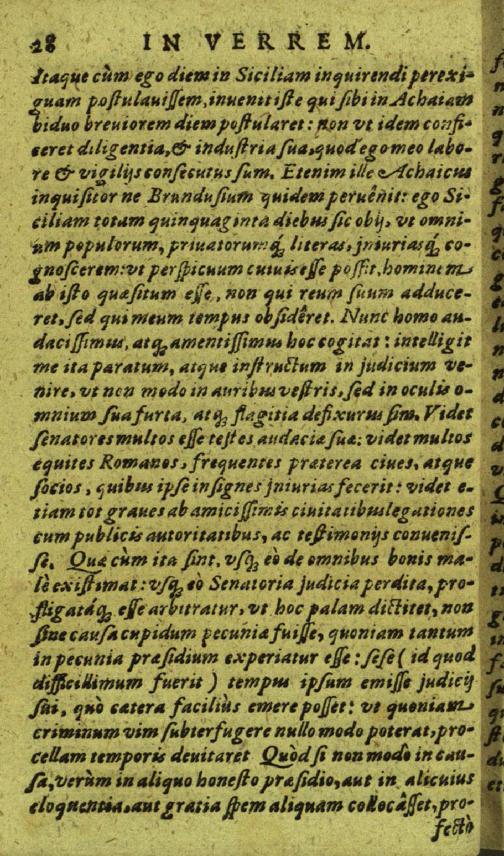 28 IN VERREM.
Itaque cùm ego diem in Siciliam inquirendi perexi-
guam postulauissem, inuenit iste qui sibi in Achaiam
biduo breuiorem diem postularet: non vt idem confi-
ceret diligentia, & industria sua, quod ego meo labo-
re & vigilijs consecutus sum. Etenim ille Achaicus
inquisitor ne Brundusium quidem peruênit: ego Si-
ciliam totam quinquaginta diebus sic obij, vt omni-
um populorum, priuatorumq́; literas, iniuriasq́; co-
gnoscerem: vt perspicuum cuiuis esse possit, hominem
ab isto quæsitum esse, non qui reum suum adduce-
ret, sed qui meum tempus obsidêret. Nunc homo au-
dacissimus, atq; amentissimus hoc cogitat: intelligit
me ita paratum, atque instructum in judicium ve-
nire, vt non modo in auribus vestris, sed in oculis o-
mnium sua furta, atq; flagitia defixurus sim. Videt
senatores multos esse testes audaciæ suæ: videt multos
equites Romanos, frequentes præterea ciues, atque
socios, quibus ipse insignes iniurias fecerit: videt e-
tiam tot graues ab amicissimis ciuitatibus legationes
cum publicis autoritatibus, ac testimonijs conuenis-
se. Quæ cùm ita sint, vsq; eò de omnibus bonis ma-
lè existimat: vsq; eò Senatoria judicia perdita, pro-
fligatáq; esse arbitratur, vt hoc palam dictitet, non
sine causa cupidum pecuniæ fuisse, quoniam tantum
in pecunia præsidium experiatur esse: sese ( id quod
difficillimum fuerit ) tempus ipsum emisse judicij
sui, quò cætera faciliùs emere posset: vt quoniam
criminum vim subterfugere nullo modo poterat, pro-
cellam temporis deuitaret Quòd si non modò in cau-
sa, verùm in aliquo honesto præsidio, aut in alicuius
eloquentia, aut gratia spem aliquam collocâsset, pro-
fectò